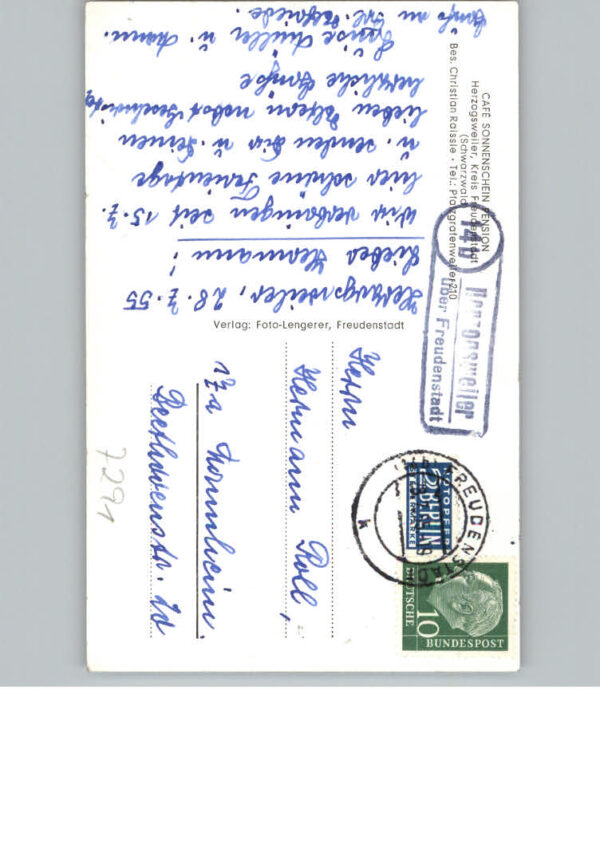 CAFÉ SONNENSCHEIN PENSION
Herzogsweiler, Kreis Freudenstadt
(Schwarzwald)
Bes. Christian Raissle · Tel.: Pfalzgrafenweiler 210
Herzogsweiler, 28.7.55
Lieber Hermann!
Wir verbringen seit 15.7.
hier schöne Ferientage
u. senden Dir u. Deinen
lieben Eltern nebst Geschwister
herzliche Grüße
Luise Müller u. Mann.
Gruß an Frl.
Verlag: Foto-Lengerer, Freudenstadt
14b
Herzogsweiler
über Freudenstadt
NOTOPFER
2 BERLIN
STEUERMARKE
FREUDENSTADT
k
DEUTSCHE
BUNDESPOST
10
Herrn
Hermann Roll,
17a Mannheim.
Beethovenstr. 20
7291